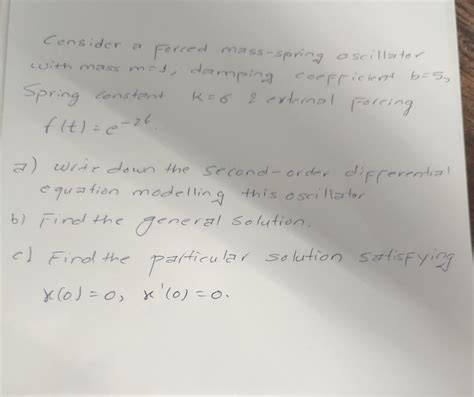 Consider a forced mass-spring oscillator
with mass m=1, damping coefficient b=5,
Spring constant K=6 & external forcing
f(t)=e^{-2t}.
a) write down the second-order differential
equation modelling this oscillator
b) Find the general solution.
c) Find the particular solution satisfying
x(0)=0, x'(0)=0.